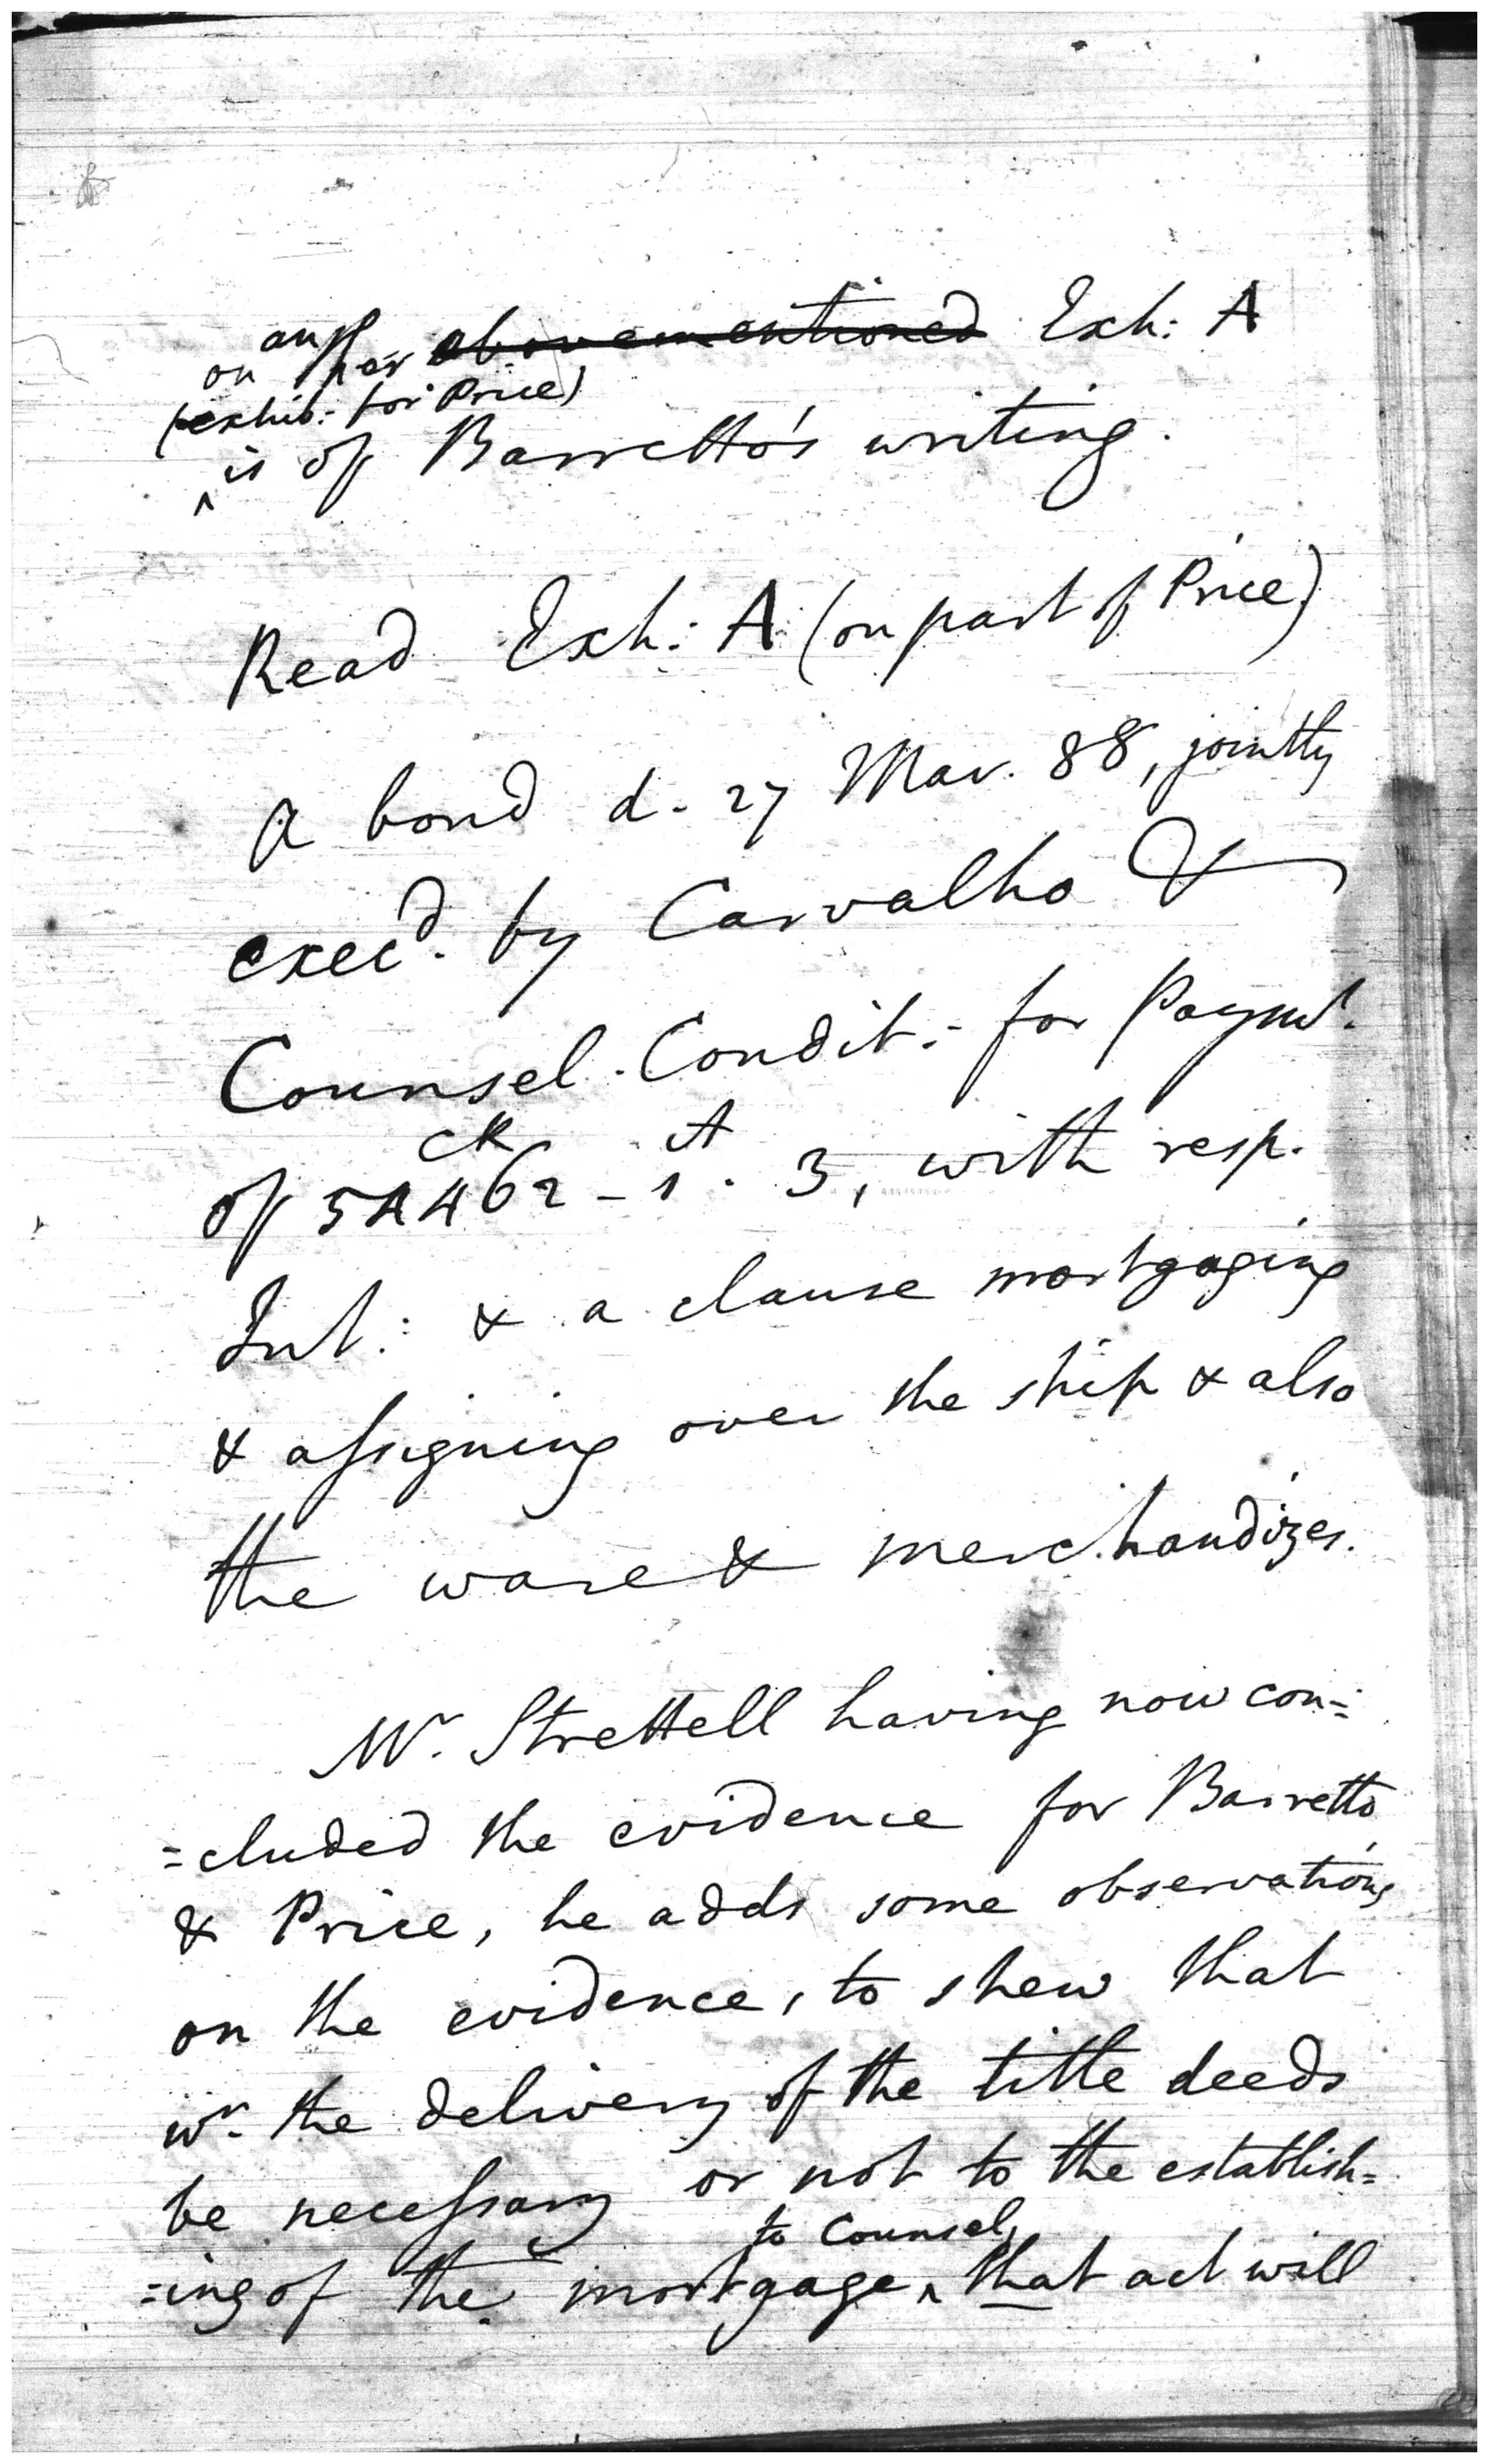 on ansr per abovementioned Exh: A
(exhib: for Price)
^ is of Barretto's writing.
Read Exh: A (on part of Price)
a bond d. 27 Mar. 88, jointly
execd. by Carvalho &
Counsel. Condit: for Paymt.
of 54462 - 1. 3, with resp.
Int: & a clause mortgaging
& assigning over the ship & also
the ware & merchandizes.
Mr. Strettell having now con=
=cluded the evidence for Barretto
& Price, he adds some observations
on the evidence, to shew that
wr. the delivery of the title deeds
be necessary or not to the establish=
to Counsel,
=ing of the mortgage ^ that act will